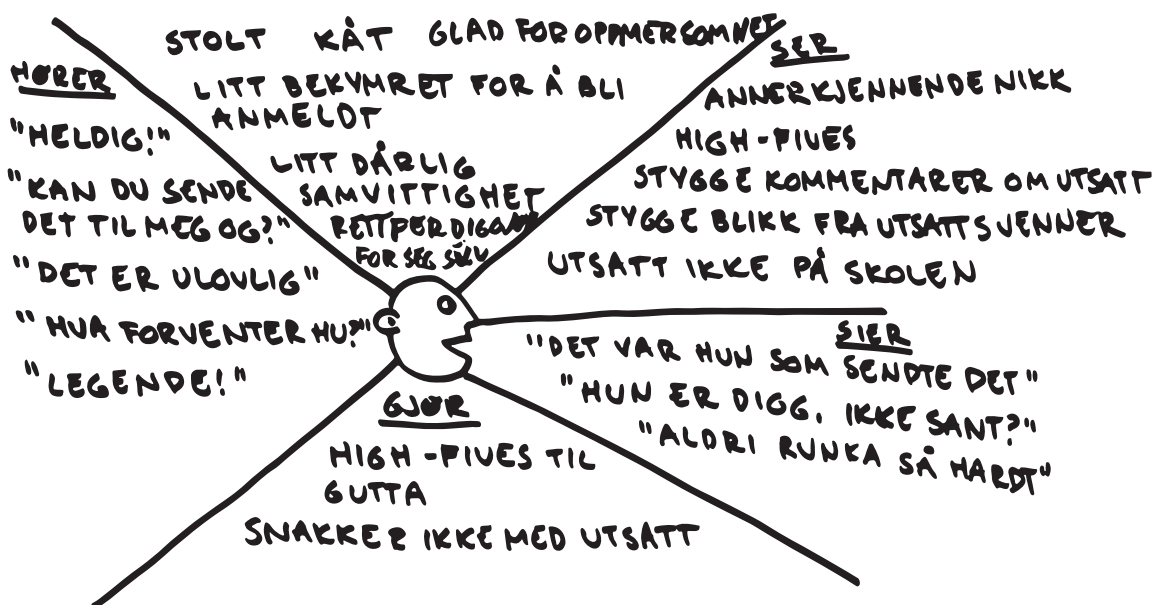 STOLT KÅT GLAD FOR OPPMERSOMHET
LITT BEKYMRET FOR Å BLI
ANMELDT
LITT DÅRLIG
SAMVITTIGHET
FOR SEG SELV
HØRER
"HELDIG!"
"KAN DU SENDE
DET TIL MEG OG?"
"DET ER ULOVLIG"
"HVA FORVENTER HU?"
"LEGENDE!"
SER
ANNERKJENNENDE NIKK
HIGH-FIVES
STYGGE KOMMENTARER OM UTSATT
STYGGE BLIKK FRA UTSATTS VENNER
UTSATT IKKE PÅ SKOLEN
SIER
"DET VAR HUN SOM SENDTE DET"
"HUN ER DIGG, IKKE SANT?"
"ALDRI RUNKA SÅ HARDT"
GJØR
HIGH-FIVES TIL
GUTTA
SNAKKER IKKE MED UTSATT